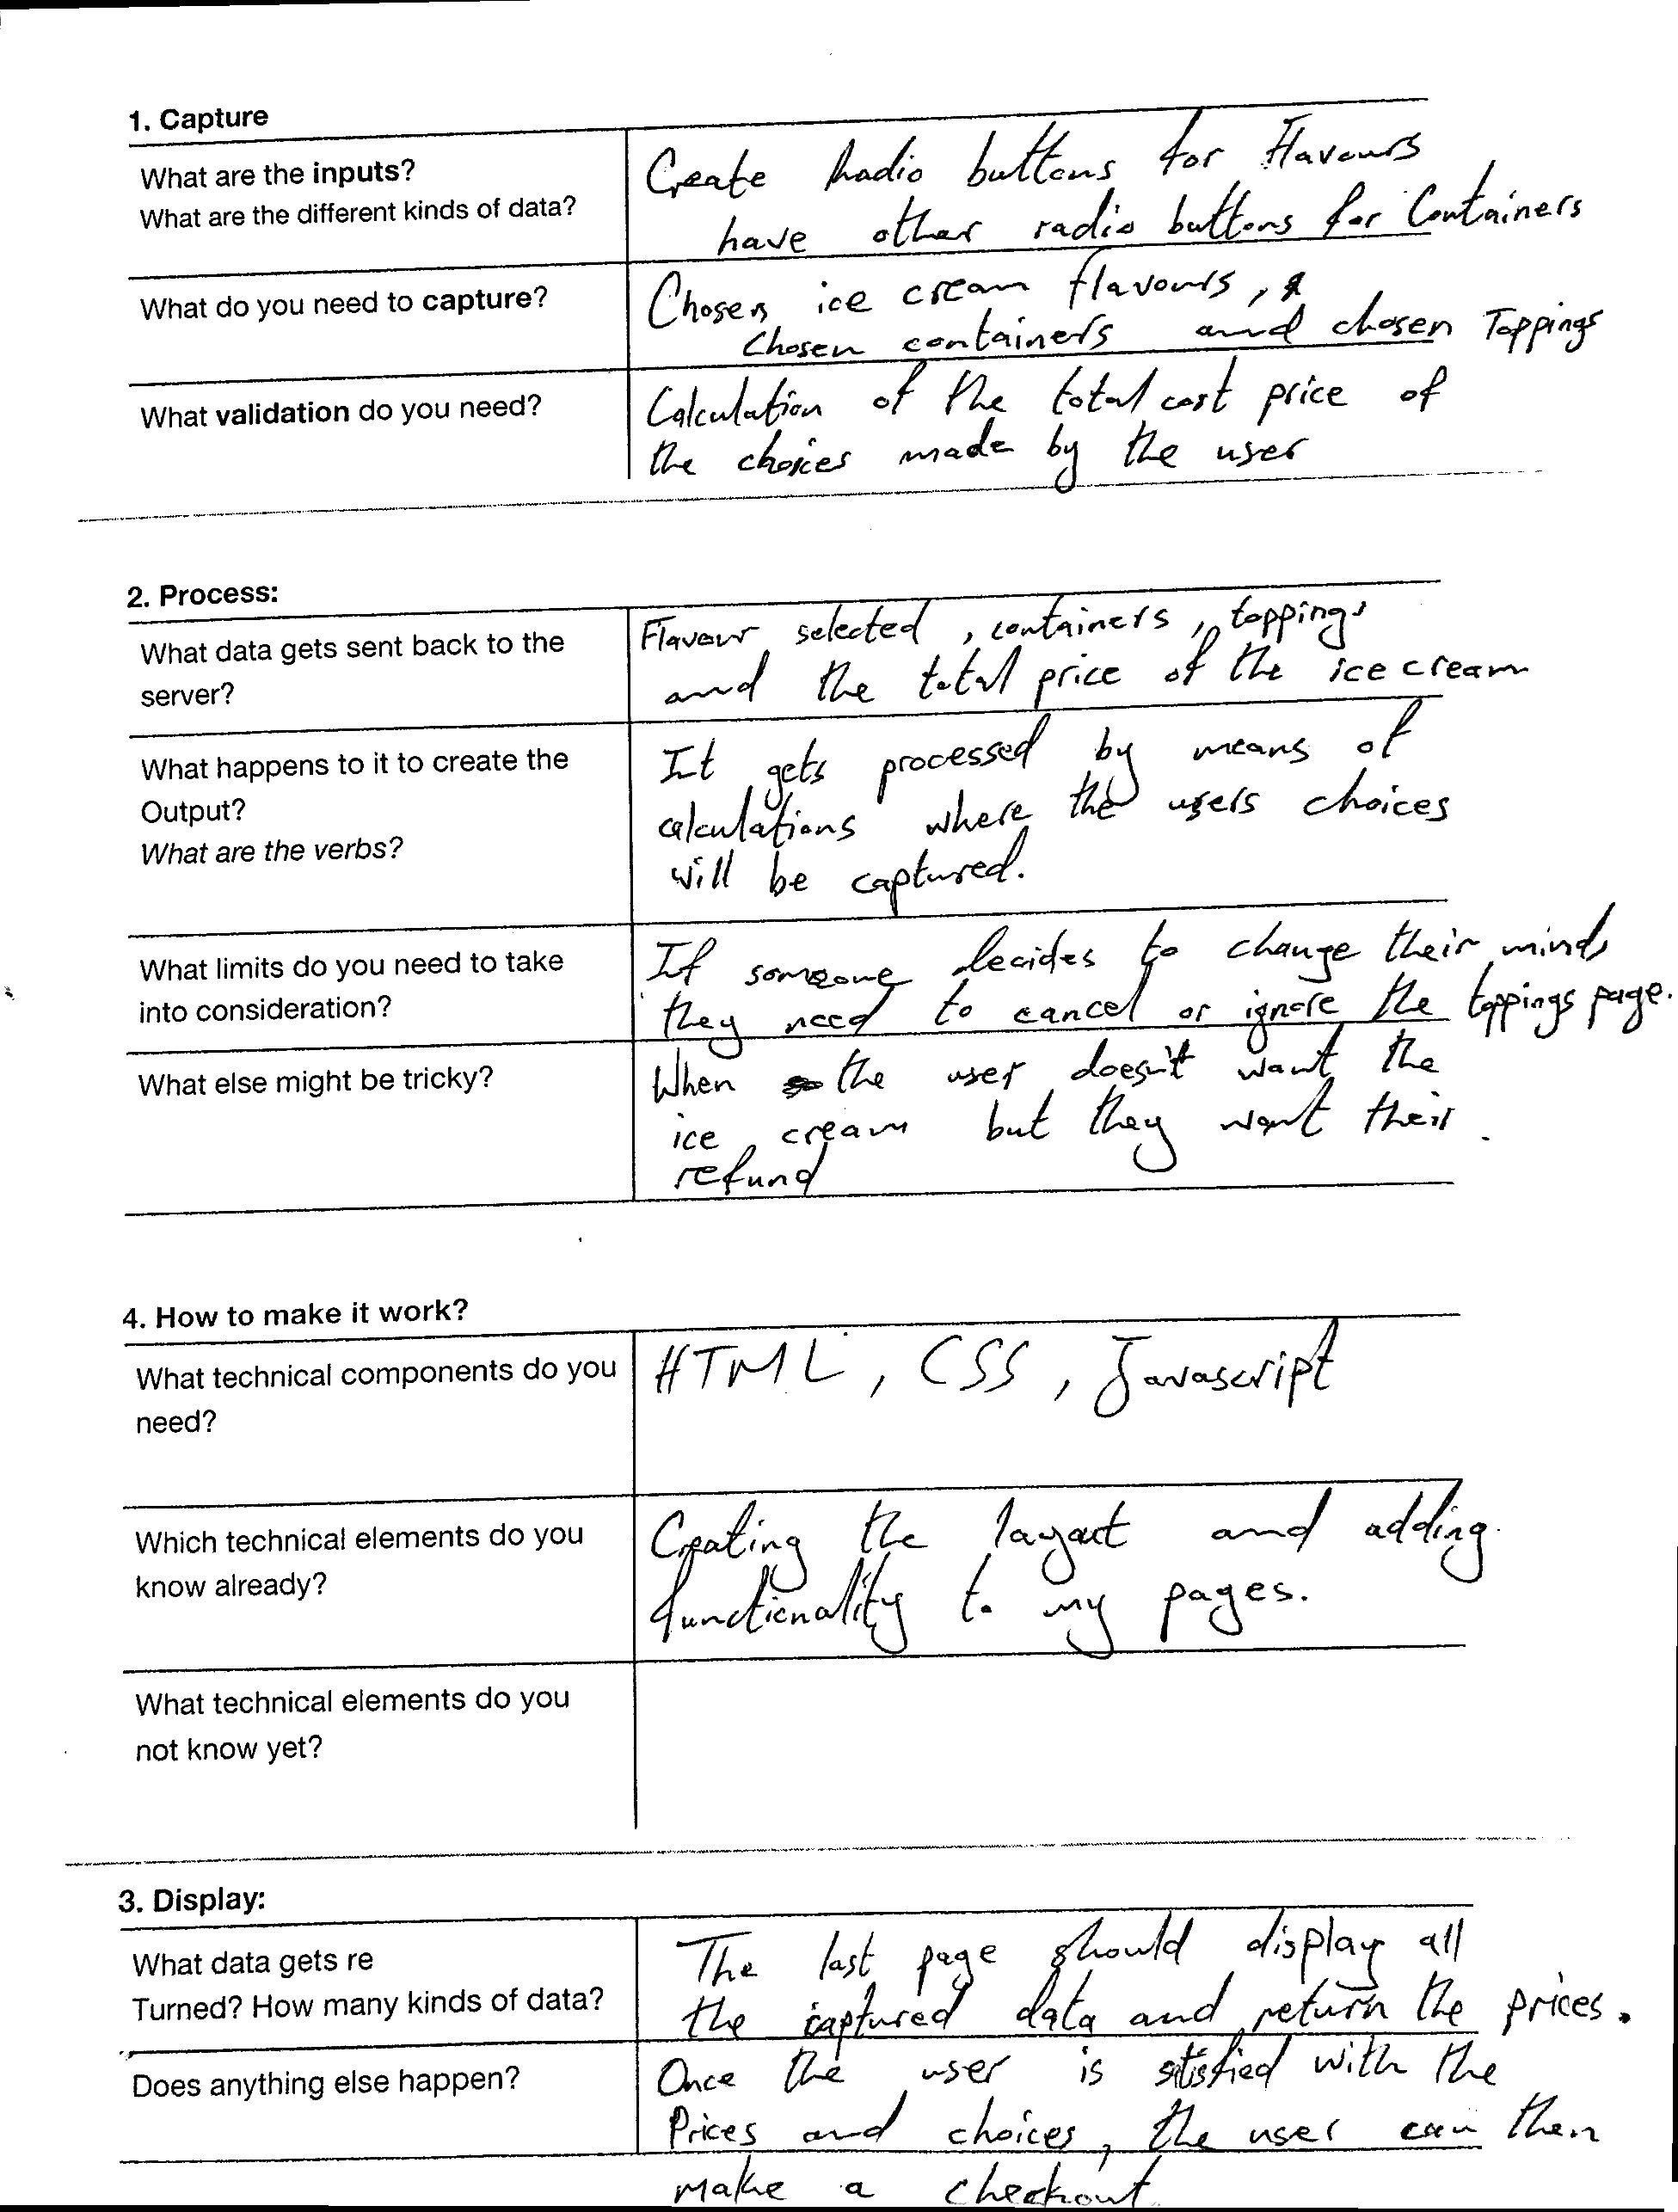 1. Capture
What are the inputs?
What are the different kinds of data?
Create Radio buttons for Flavours
have other radio buttons for Containers
What do you need to capture?
Chosen ice cream flavours,
Chosen containers and chosen Toppings
What validation do you need?
Calculation of the total cost price of
the choices made by the user
2. Process:
What data gets sent back to the
server?
Flavour selected, containers, toppings
and the total price of the ice cream
What happens to it to create the
Output?
What are the verbs?
It gets processed by means of
calculations where the users choices
will be captured.
What limits do you need to take
into consideration?
If someone decides to change their minds
they need to cancel or ignore the toppings page.
What else might be tricky?
When the user doesn't want the
ice cream but they want their
refund
4. How to make it work?
What technical components do you
need?
HTML, CSS, Javascript
Which technical elements do you
know already?
Creating the layout and adding
functionality to my pages.
What technical elements do you
not know yet?
3. Display:
What data gets re
Turned? How many kinds of data?
The last page should display all
the captured data and return the prices.
Does anything else happen?
Once the user is satisfied with the
Prices and choices, the user can then
make a checkout